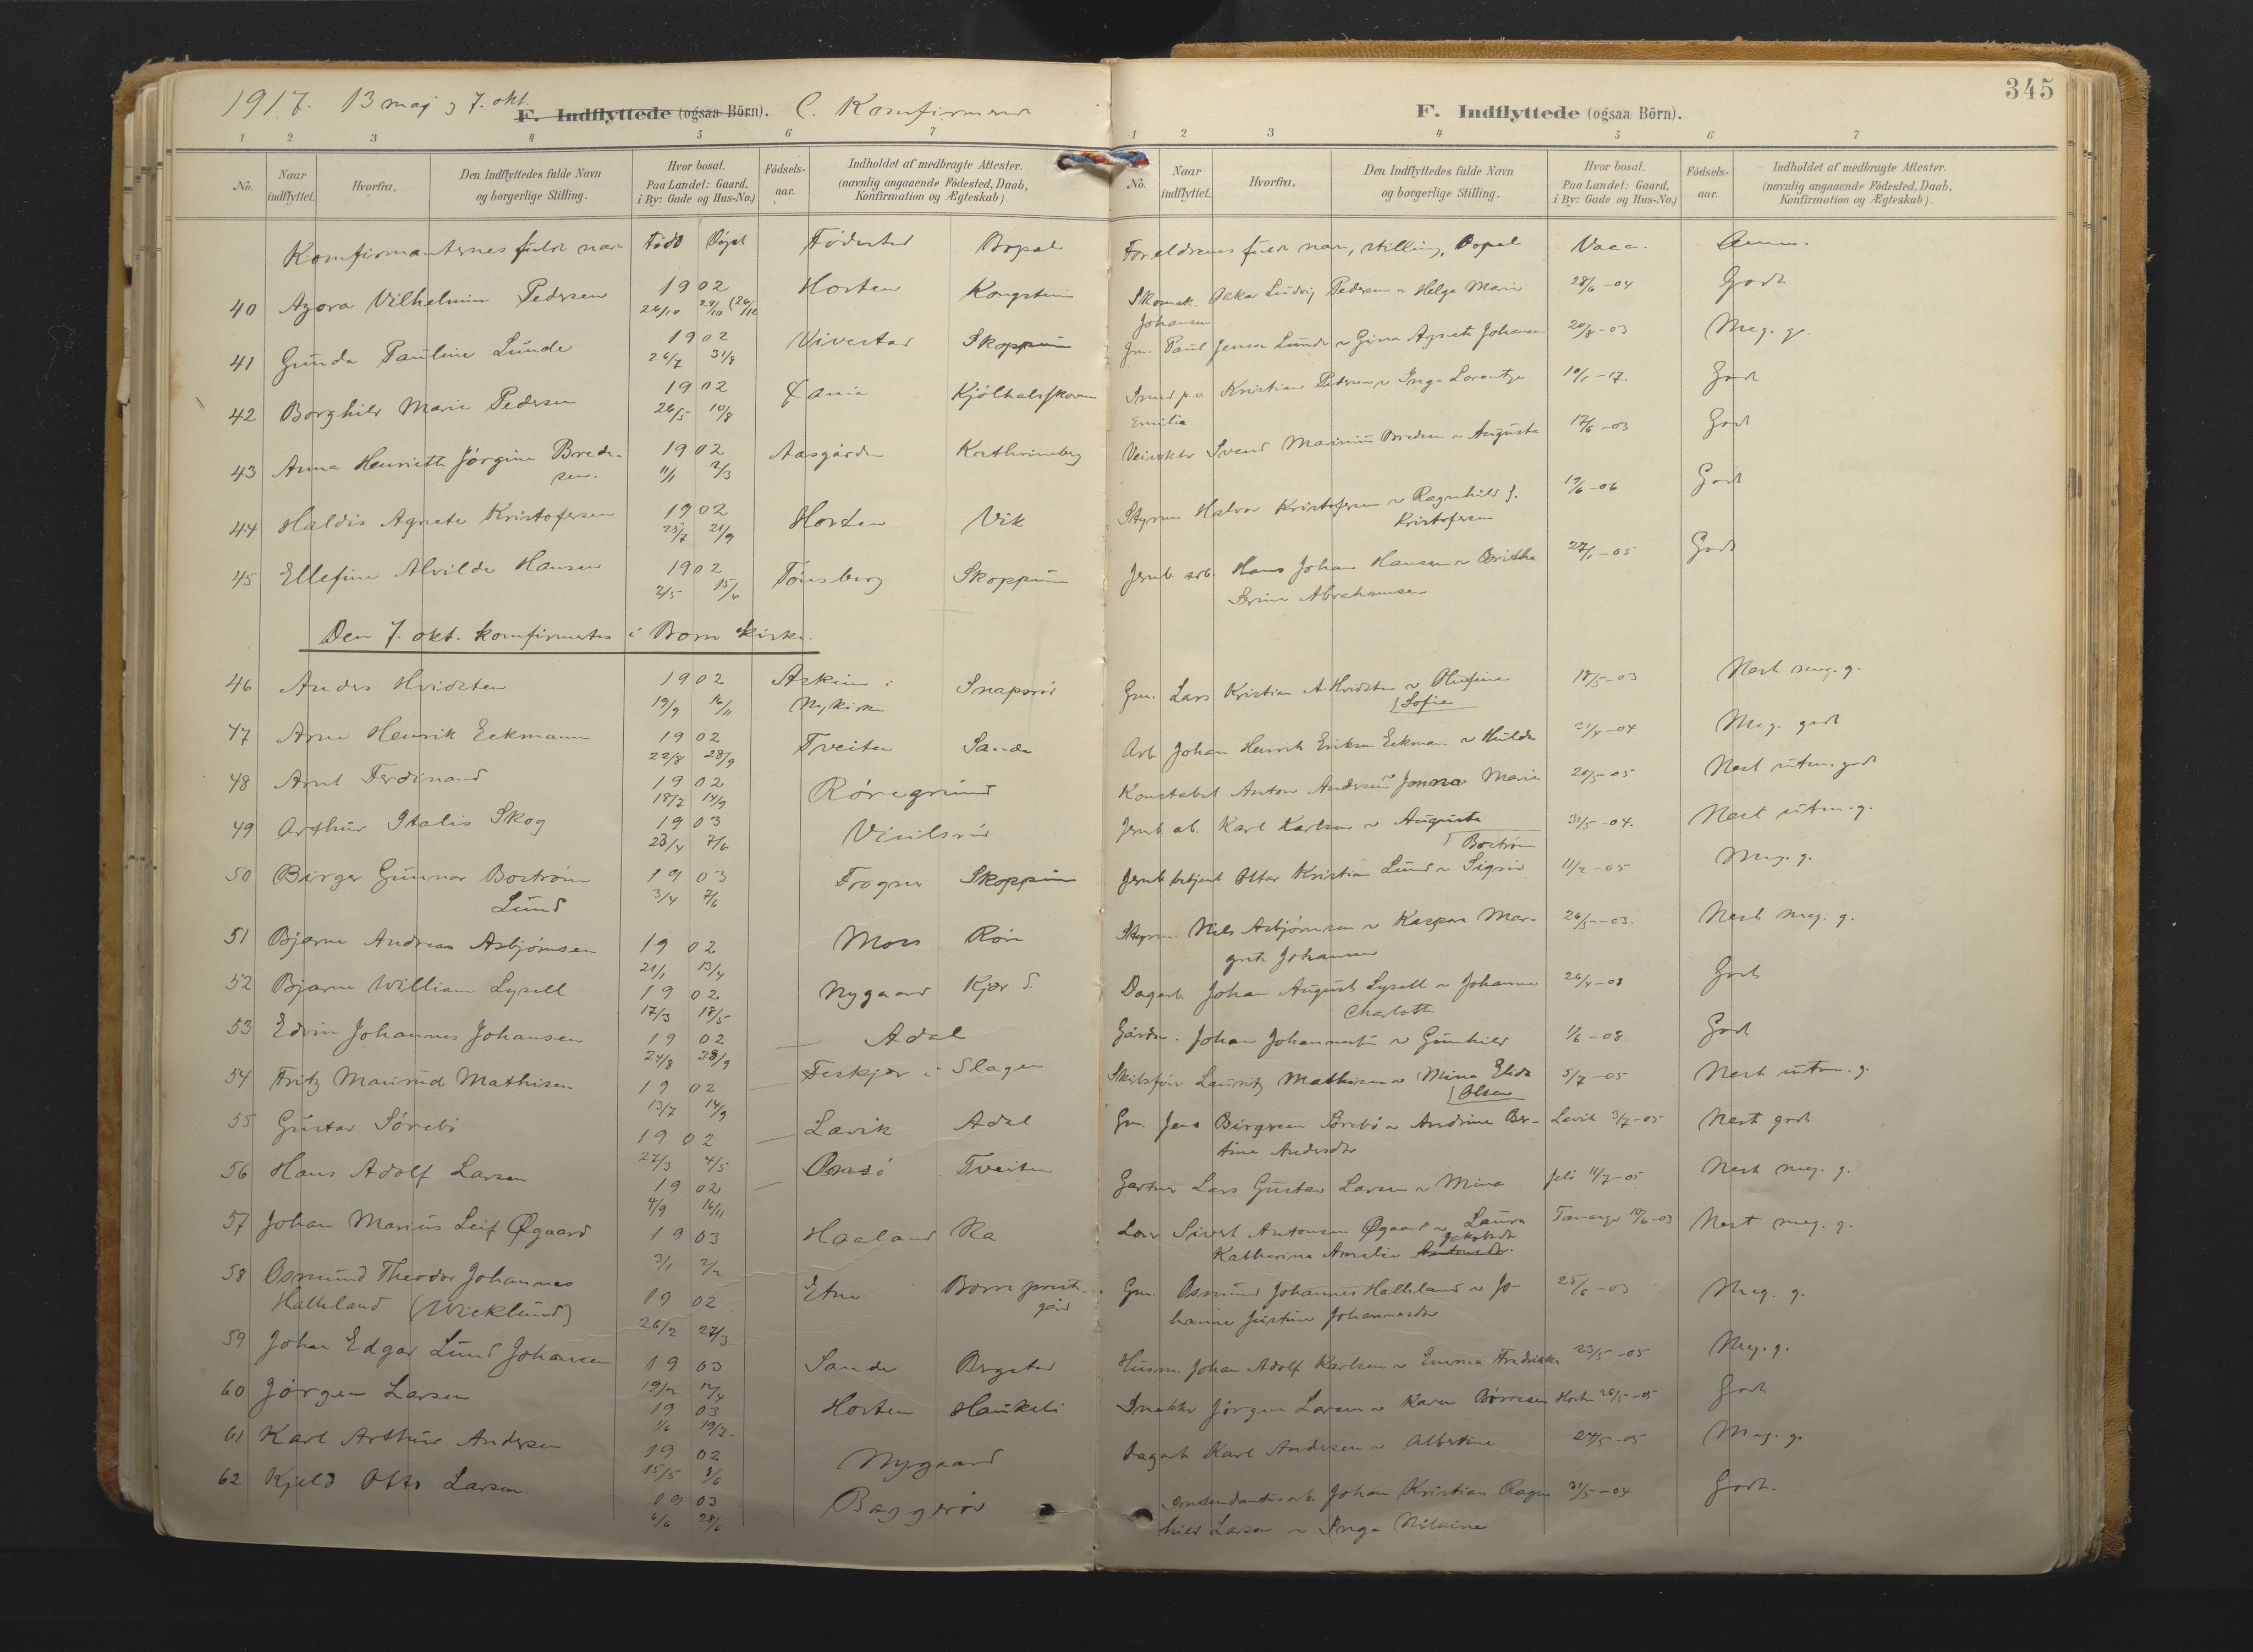 1917. 13 maj og 7. okt.
F. Indflyttede (ogsaa Börn). C. Konfirmerede
1 2 3 4 5 6 7
No. Naar indflyttet. Hvorfra. Den Indflyttedes fulde Navn og borgerlige Stilling. Hvor bosat. Paa Landet: Gaard, i By: Gade og Hus-No.) Födselsaar. Indholdet af medbragte Attester. (navnlig angaaende Födested, Daab, Konfirmation og Ægteskab).
Konfirmanternes fulde navn Född Döpt Födested Bopæl
40 Agora Vilhelmine Pedersen 1902 26/10 Horten
41 Gunda Pauline Lunde 1902 26/7 31/8 Vivestad Skoppum
42 Borghild Marie Pedersen 1902 26/5 10/8
43 Anna Henriette Jörgine Brede-
sen. 1902 11/1 2/3 Aasgården Kathrineberg
44 Haldis Agnete Kristofersen 1902 25/7 21/9 Horten Vik
45 Ellefine Alvilde Hansen 1902 2/5 15/6 Tönsberg Skoppum
Den 7. okt. konfirmertes i Borre kirke.
46 Anders Hvidsten 1902 19/9 16/11 Askim i
Nykirke Snapsröd
47 Arne Henrik Eckmann 1902 22/8 28/9 Tveiten Sande
48 Arnt Ferdinand 1902 18/7 14/9 Röregrund
49 Arthur Italis Skog 1903 23/4 7/6
50 Birger Gunnar Boström
Lund 1903 3/4 7/6 Frogner Skoppum
51 Bjarne Andreas Asbjörnsen 1902 21/1 13/4 Moss Rörе
52 Bjarne William Lysell 1902 17/3 18/5 Nygaard Kjær S.
53 Edvin Johannes Johansen 1902 24/8 28/9 Adal
54 Fritz Maurud Mathisen 1902 13/7 14/9 Feskjær i Slagen
55 Gustav Sörebö 1902 27/3 4/5 Lavik Adal
56 Hans Adolf Larsen 1902 4/9 16/11 Onsö Tveiten
57 Johan Marius Leif Øgaard 1903 3/1 2/2 Haaland Ra
58 Osmund Theodor Johannes
Halleland (Wicklund) 1902 26/2 27/3 Etne Borre prestegård
59 Johan Edgar Lund Johansen 1903 19/2 12/4 Sande
60 Jörgen Larsen 1903 1/6 19/7. Horten Haukeli
61 Karl Arthur Andersen 1902 15/5 8/6 Nygaard
62 Kjeld Otto Larsen. 1903 6/6 28/6 Baggeröd
345
F. Indflyttede (ogsaa Börn).
1 2 3 4 5 6 7
No. Naar indflyttet. Hvorfra. Den Indflyttedes fulde Navn og borgerlige Stilling. Hvor bosat. Paa Landet: Gaard, i By: Gade og Hus-No.) Födselsaar. Indholdet af medbragte Attester. (navnlig angaaende Födested, Daab, Konfirmation og Ægteskab).
Foreldrenes fulde navn, stilling, Bopæl Vacc. Anm.
Skomak. Oskar Ludvig Pedersen og Helga Marie
Johansen 28/6-04 Godt
Gm. Paul Jensen Lunde og Gina Agnete Johansen 20/8-03 Meg. g.
Kristian Pedersen og Inga Lorentze
Emilie 10/1-17. Godt
Veivokter Svend Marinius Bredesen og Augusta 17/6-03 Godt
Styrm. Halvor Kristofersen og Ragnhild J.
Kristofersen 19/6-06 Godt
Jernb. arb. Hans Johan Hansen og Birthe
Serine Abrahamsen 27/1-05 Godt
Gm. Lars Kristian A. Hvidsten og Olufine
Sofie 18/5-03 Nest meg. g.
Arb. Johan Henrik Eriksen Eckman og Hulda 21/4-04 Meg. godt
Konstabel Anton Andersen og Jonna Marie 20/5-05 Nest utm. godt
Jernb. arb. Karl Karlsen og Augusta 31/5-04. Nest utm. g.
Boström
Jernb. betjent Ottar Kristian Lund og Sigrid 11/2-05 Meg. g.
Styrm. Nils Asbjörnsen og Kaspara Mar-
grete Johansen 26/5-03. Nest meg. g.
Dagarb. Johan August Lysell og Johanne
Charlotte 26/4-08 Godt
Gårdbr. Johan Johannesen og Gunhild 1/6-08. Godt
Skibsförer Lauritz Mathisen og Mina Elida
Olsen 5/7-05 Nest utm. g.
Gm. Jens Birgersen Sörebö og Andrine Ber-
tine Andersdtr Lavik 3/7-05 Nest godt
Gartner Lars Gustav Larsen og Mina 11/7-05 Nest meg. g.
Sivert Antonsen Øgaard og Laura
Katharina Amalie Jakobsdtr Antonsdtr. 10/6-03 Nest meg. g.
Gm. Osmund Johannes Halleland og Jo-
hanne Justine Johannesdtr 25/6-03 Meg. g.
Husm. Johan Adolf Karlsen og Emma Fredrikke 23/5-05 Meg. g.
Snekker Jörgen Larsen og Karen Börresen Horten 26/5-05 Godt
Dagarb. Karl Andersen og Albertine 24/5-05 Meg. g.
Johan Kristian Ragn-
hild Larsen og Inga Nilsine 31/5-04 Godt.